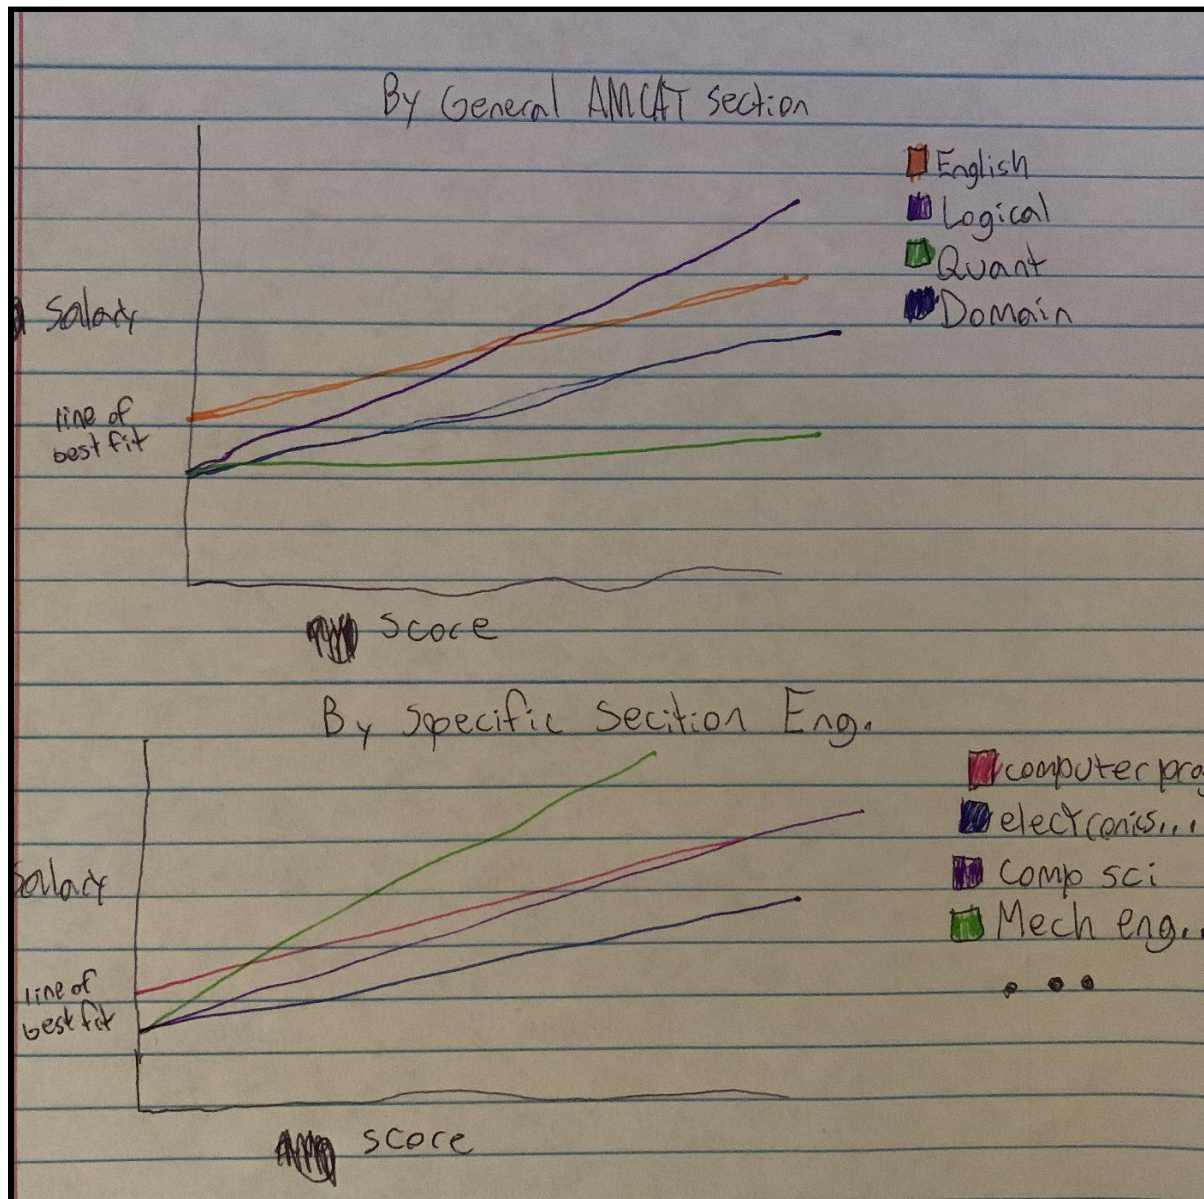 By General AMCAT section
English
Logical
Quant
Domain
Salary
line of
best fit
score
By Specific Secition Eng.
computer prog
electronics...
Comp sci
Mech eng..
...
Salary
line of
best fit
score